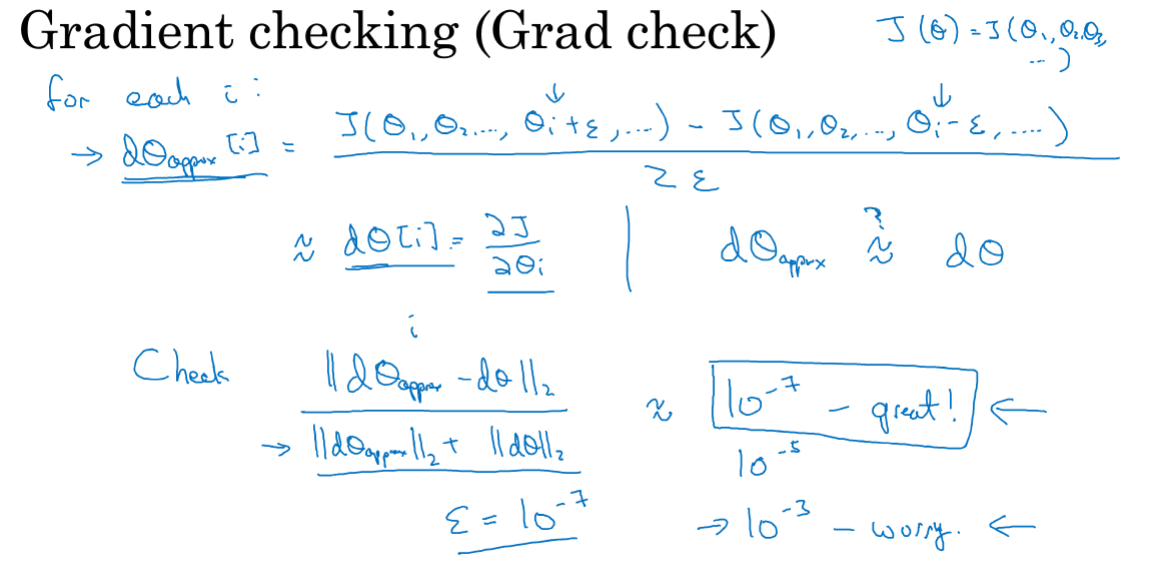 Gradient checking (Grad check)
J(θ) = J(θ₁, θ₂, θ₃, ...)
for each i:
→ dθapprox[i] = (J(θ₁, θ₂, ..., θᵢ+ε, ...) - J(θ₁, θ₂, ..., θᵢ-ε, ....)) / 2ε
≈ dθ[i] = ∂J/∂θᵢ | dθapprox ≈? dθ
i
Check ||dθapprox - dθ||₂ / (||dθapprox||₂ + ||dθ||₂) ≈ 10⁻⁷ - great! ←
10⁻⁵
ε = 10⁻⁷ → 10⁻³ - worry. ←